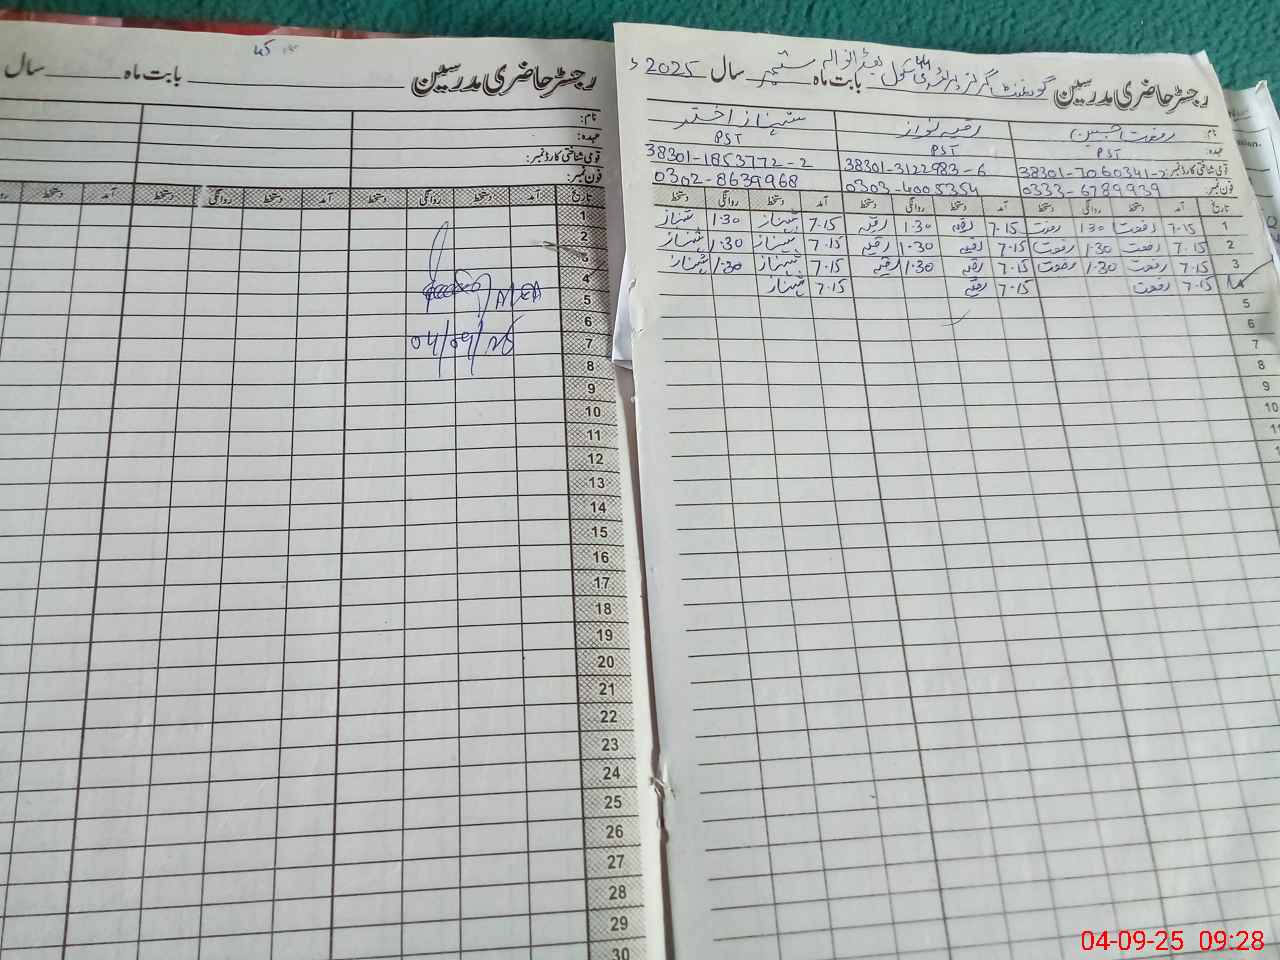 رجسٹر حاضری مدرسین گورنمنٹ گرلز پرائمری سکول بابت ماہ ستمبر سال 2025ء
نام: رفعت جبین رقیہ نواز شہناز اختر
عہدہ: PST PST PST
قومی شناختی کارڈ نمبر: 38301-7060341-2 38301-3122983-6 38301-1853772-2
فون نمبر: 0333-6789939 0303-4005354 0302-8639968
تاریخ آمد دستخط روانگی دستخط آمد دستخط روانگی دستخط آمد دستخط روانگی دستخط
1 7.15 رفعت 1.30 رفعت 7.15 رقیہ 1.30 رقیہ 7.15 شہناز 1.30 شہناز
2 7.15 رفعت 1.30 رفعت 7.15 رقیہ 1.30 رقیہ 7.15 شہناز 1.30 شہناز
3 7.15 رفعت 1.30 رفعت 7.15 رقیہ 1.30 رقیہ 7.15 شہناز 1.30 شہناز
7.15 رفعت 7.15 رقیہ 7.15 شہناز
5
6
7
8
9
10
11
12
رجسٹر حاضری مدرسین بابت ماہ سال
45
نام:
عہدہ:
قومی شناختی کارڈ نمبر:
فون نمبر:
تاریخ آمد دستخط روانگی دستخط آمد دستخط روانگی دستخط آمد دستخط
1
2
3
4
5 AEO
6
7 04/09/25
8
9
10
11
12
13
14
15
16
17
18
19
20
21
22
23
24
25
26
27
28
29
30
04-09-25 09:28